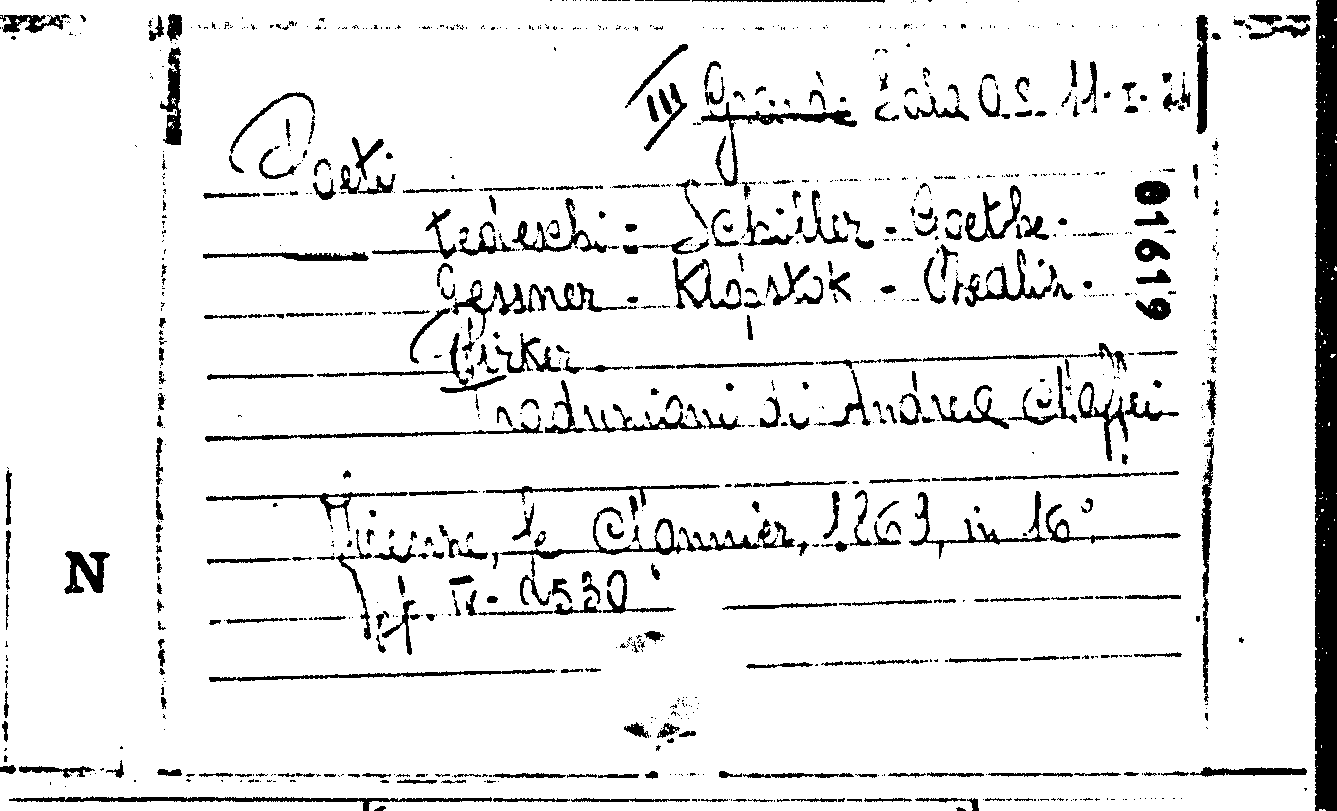 III Grande Sala A.S. 11. I.
Poeti
tedeschi: Schiller - Goethe.
Gessner - Klopstok - Chedlir.
Pirker.
Traduzioni di Andrea Maffei
Firenze, Le Monnier, 1869, in 16°.
pp. IV - 530
01619
N